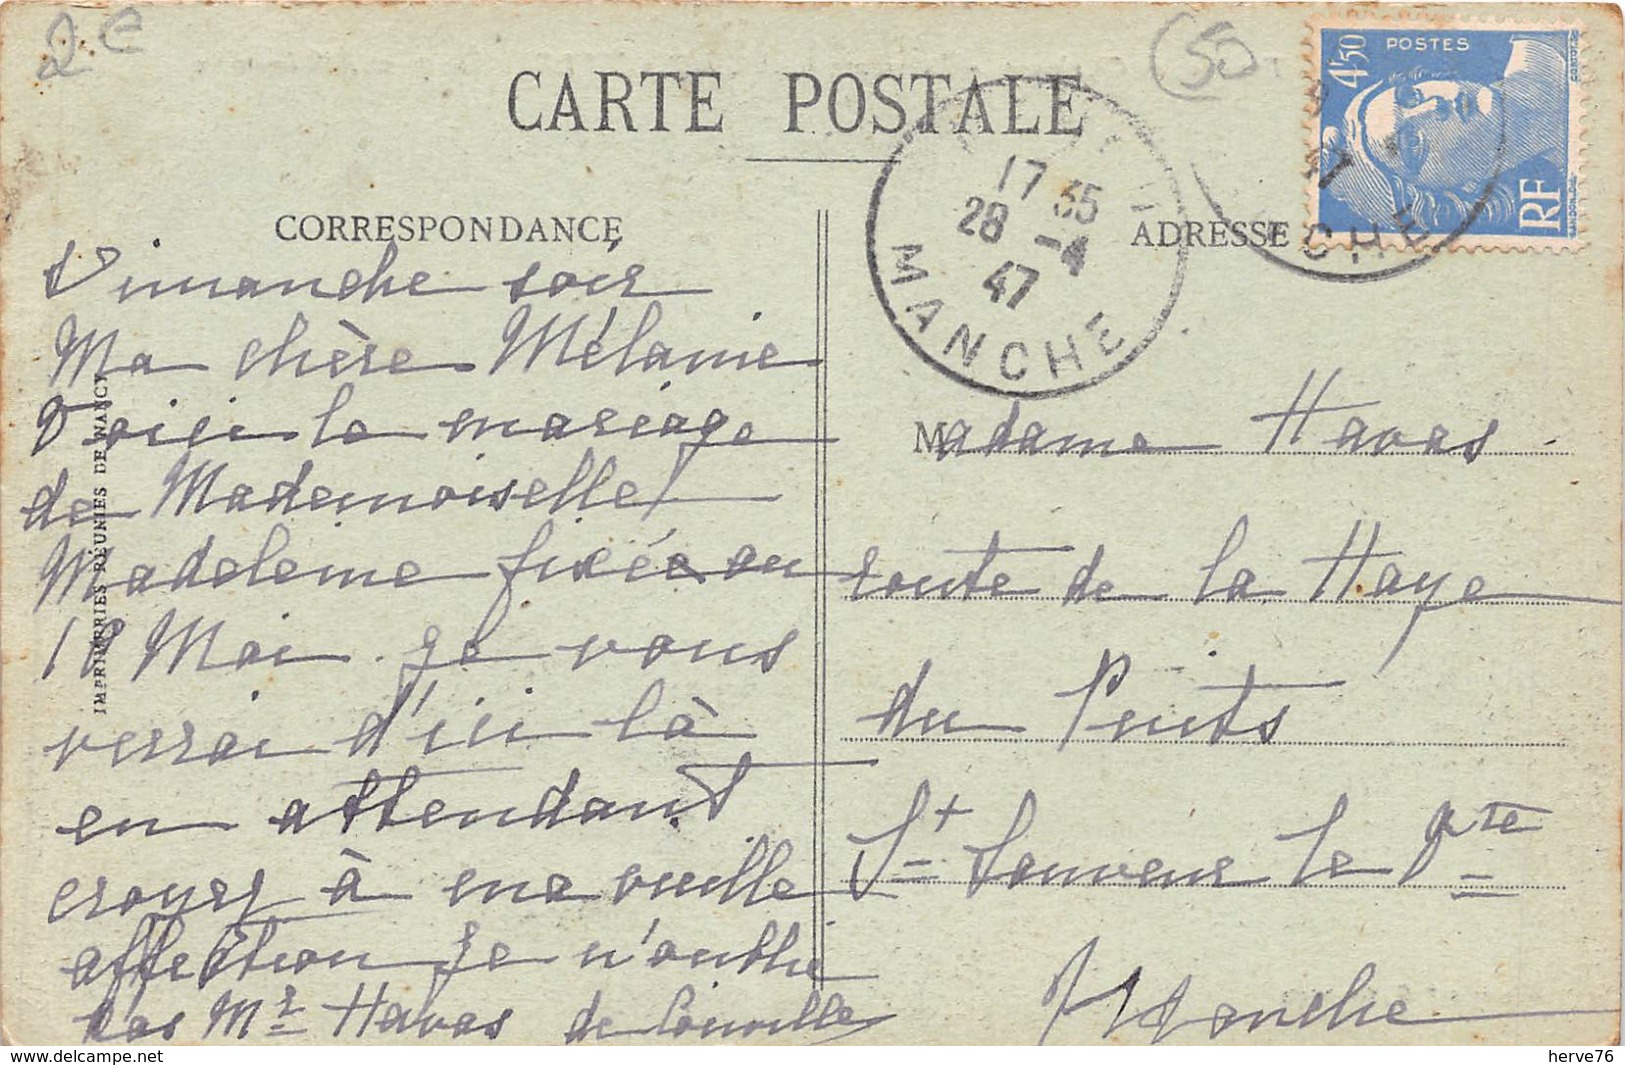 2e
55
CARTE POSTALE
POSTES
4F50
RF
17 35
28 -4
47
MANCHE
CHE
47
CORRESPONDANCE
ADRESSE
Dimanche soir
Ma chère Mélanie
Voici le mariage
de Mademoiselle
Madeleine fixée au
18 Mai. Je vous
verrai d'ici là
en attendant
croyez à ma vieille
affection Je n'oublie
pas Mr Havas de
IMPRIMERIES RÉUNIES DE NANCY
Madame Havas
route de la Haye
du Puits
St Sauveur le Vte
Manche
delcampe.net
herve76